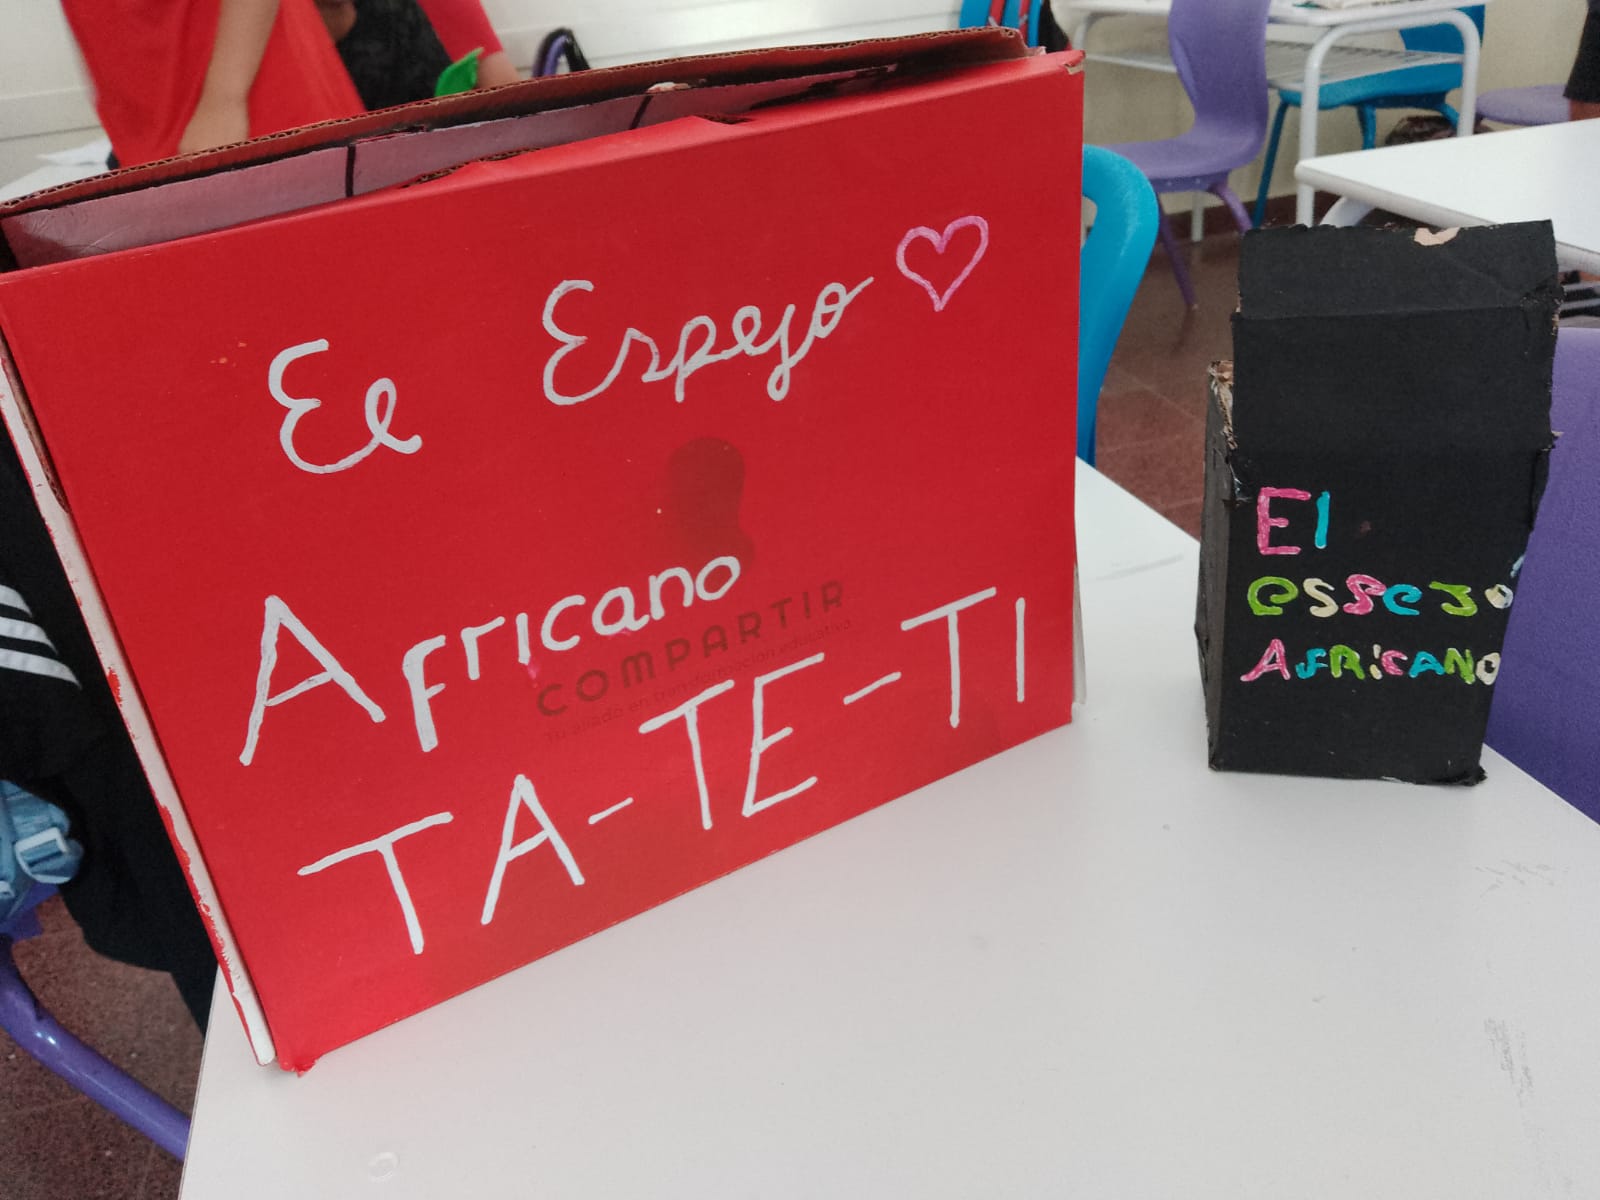 El Espejo
Africano
COMPARTIR
Tu aliado en transformación educativa
TA-TE-TI
El
espejo
AFRICANO